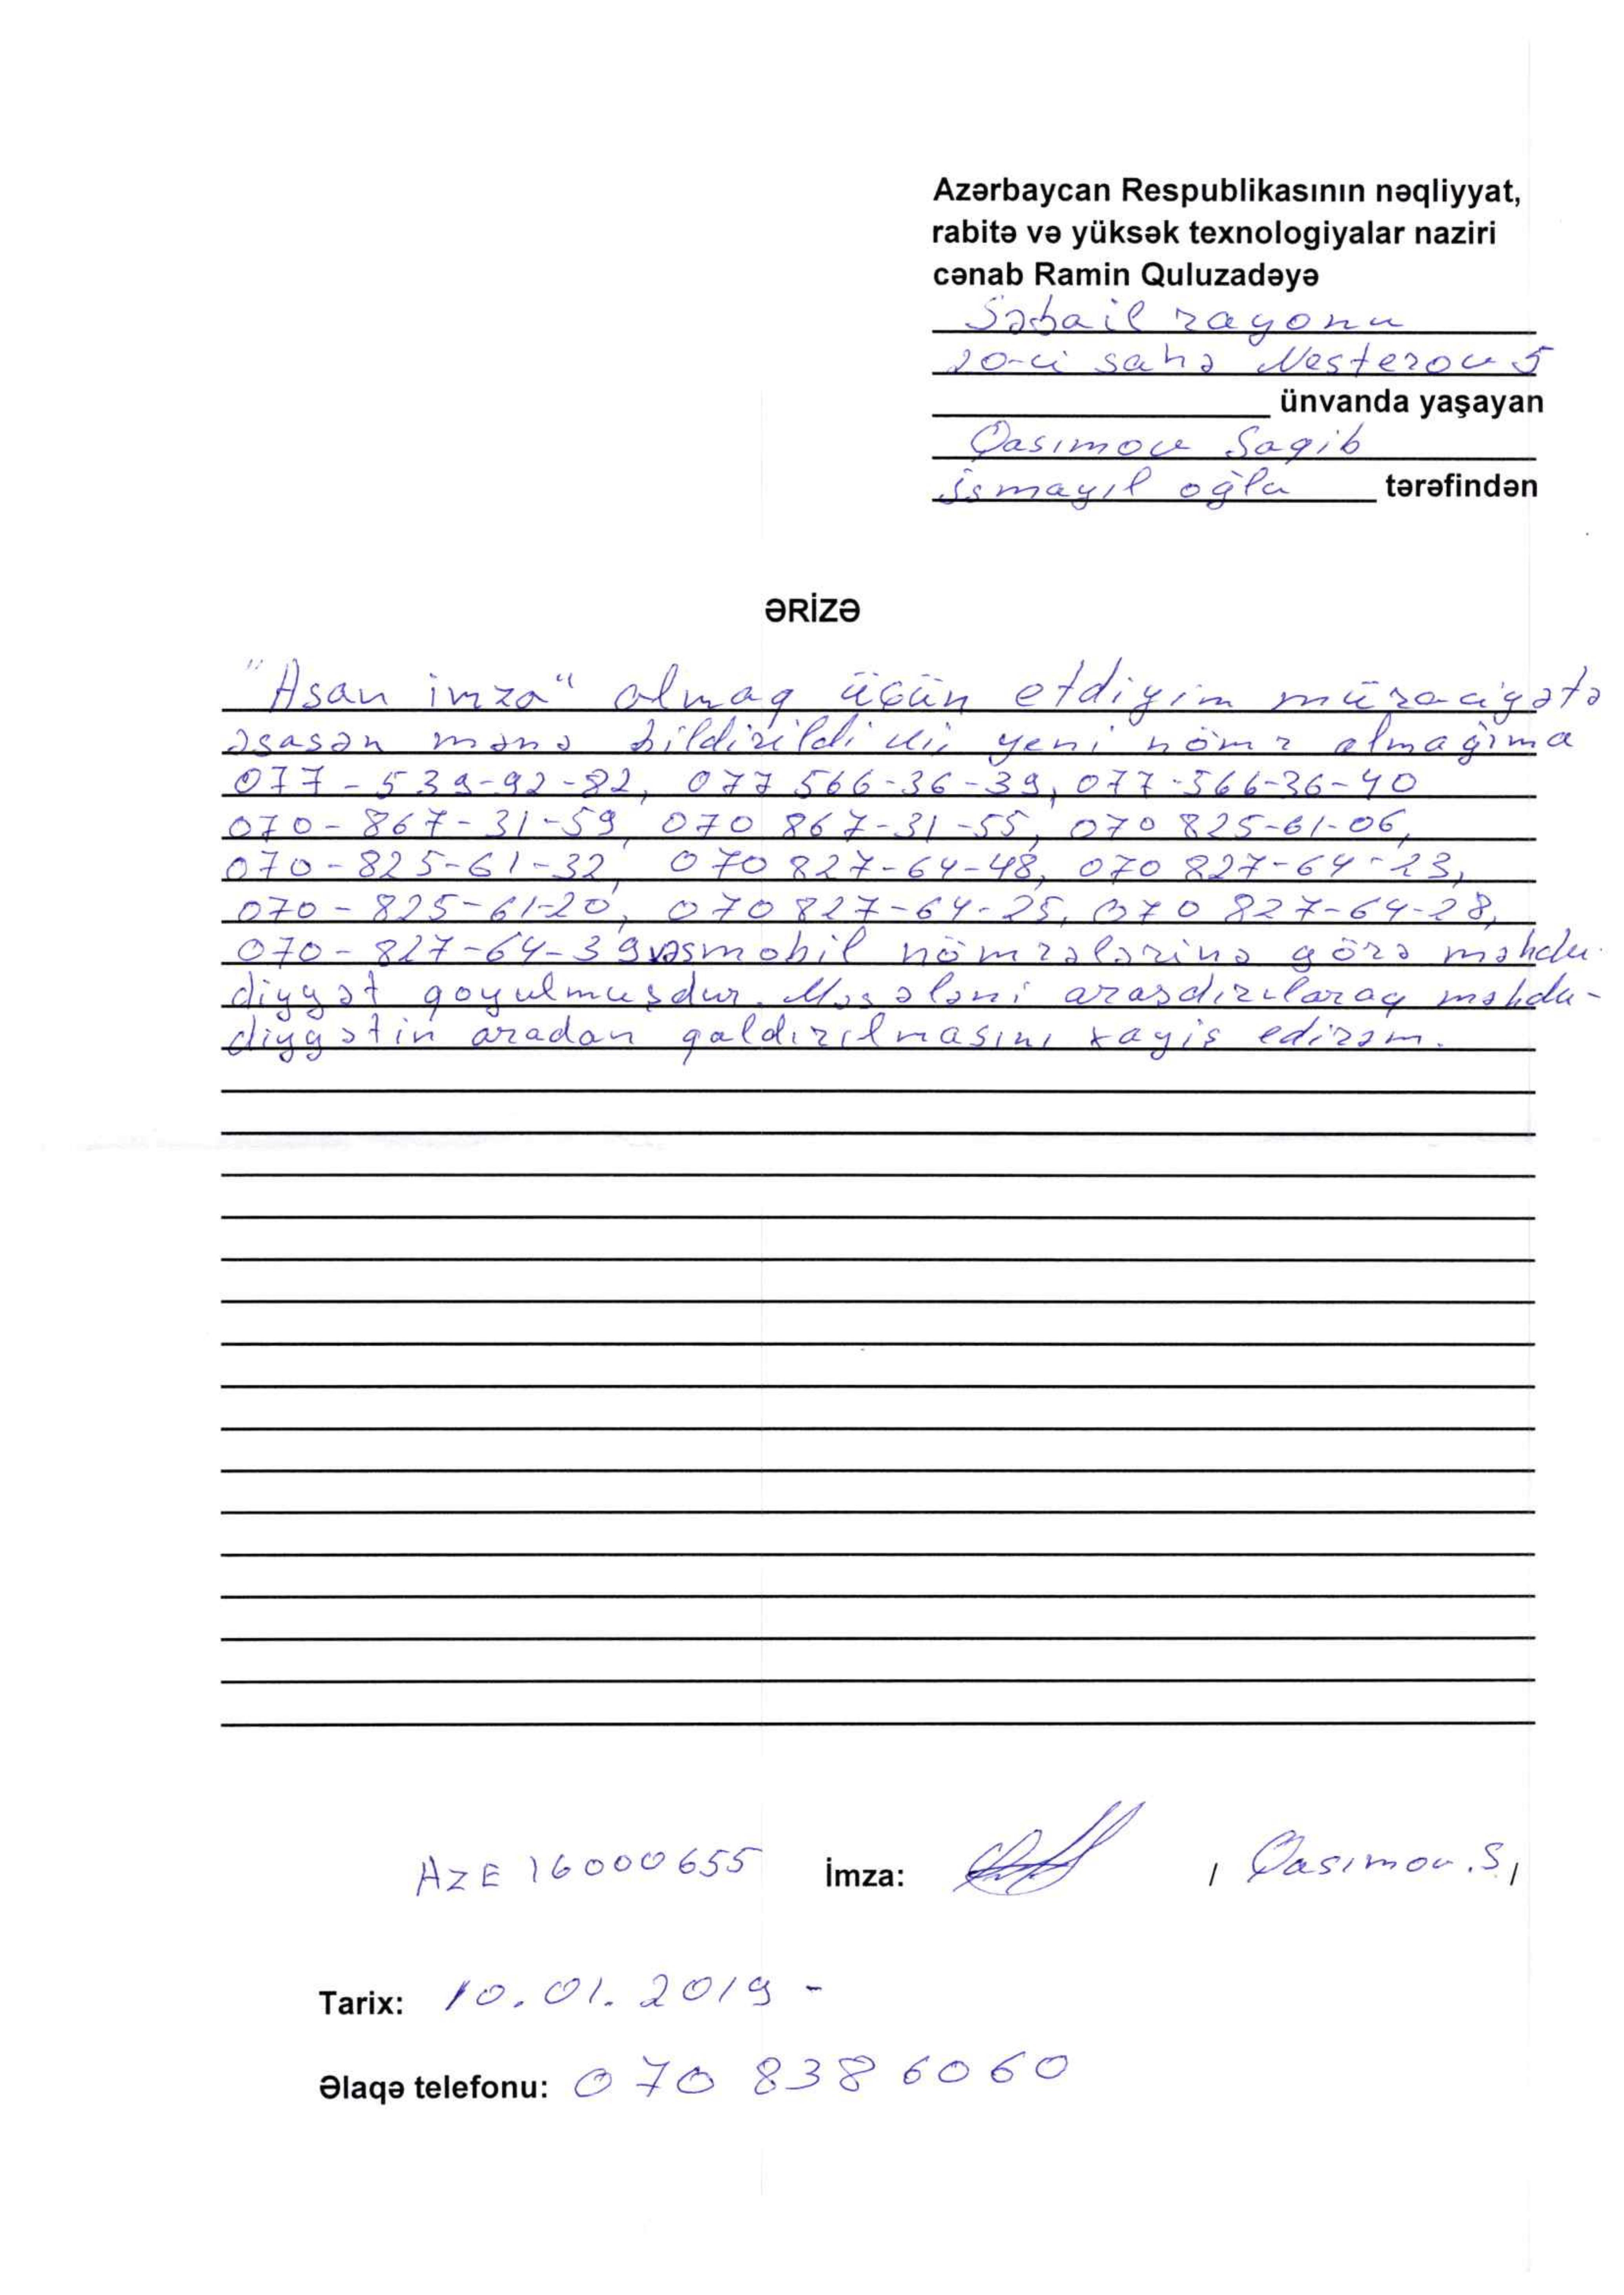 Azərbaycan Respublikasının nəqliyyat,
rabitə və yüksək texnologiyalar naziri
cənab Ramin Quluzadəyə
Səbail rayonu
20-ci sahə Nesterov 5
ünvanda yaşayan
Qasımov Saqib
İsmayıl oğlu tərəfindən
ƏRİZƏ
"Asan imza" almaq üçün etdiyim müraciyətə
əsasən mənə bildirildi ki yeni nömr almağıma
077-539-92-82, 077 566-36-39, 077-566-36-40
070-867-31-59, 070 867-31-55, 070 825-61-06,
070-825-61-32, 070 827-64-48, 070 827-64-23,
070-825-61-20, 070 827-64-25, 070 827-64-28,
070-827-64-39 mobil nömrələrinə görə məhdu-
diyyət qoyulmuşdur. Məsələni araşdırılaraq məhdu-
diyyətin aradan qaldırılmasını xayiş edirəm.
AZE 16000655 İmza: / Qasımov.S /
Tarix: 10.01.2019-
Əlaqə telefonu: 070 838 60 60